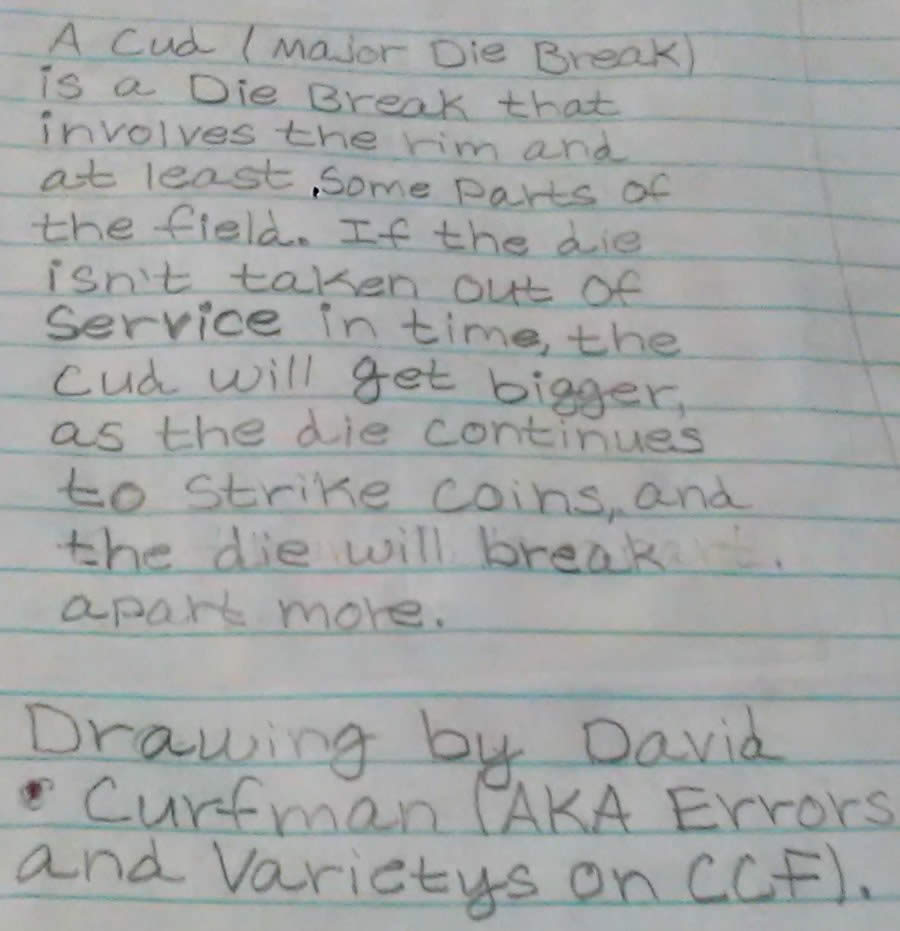 A Cud (Major Die Break)
is a Die Break that
involves the rim and
at least some parts of
the field. If the die
isn't taken out of
Service in time, the
Cud will get bigger,
as the die continues
to strike coins, and
the die will break
apart more.
Drawing by David
Curfman (AKA Errors
and Varietys on CCF).